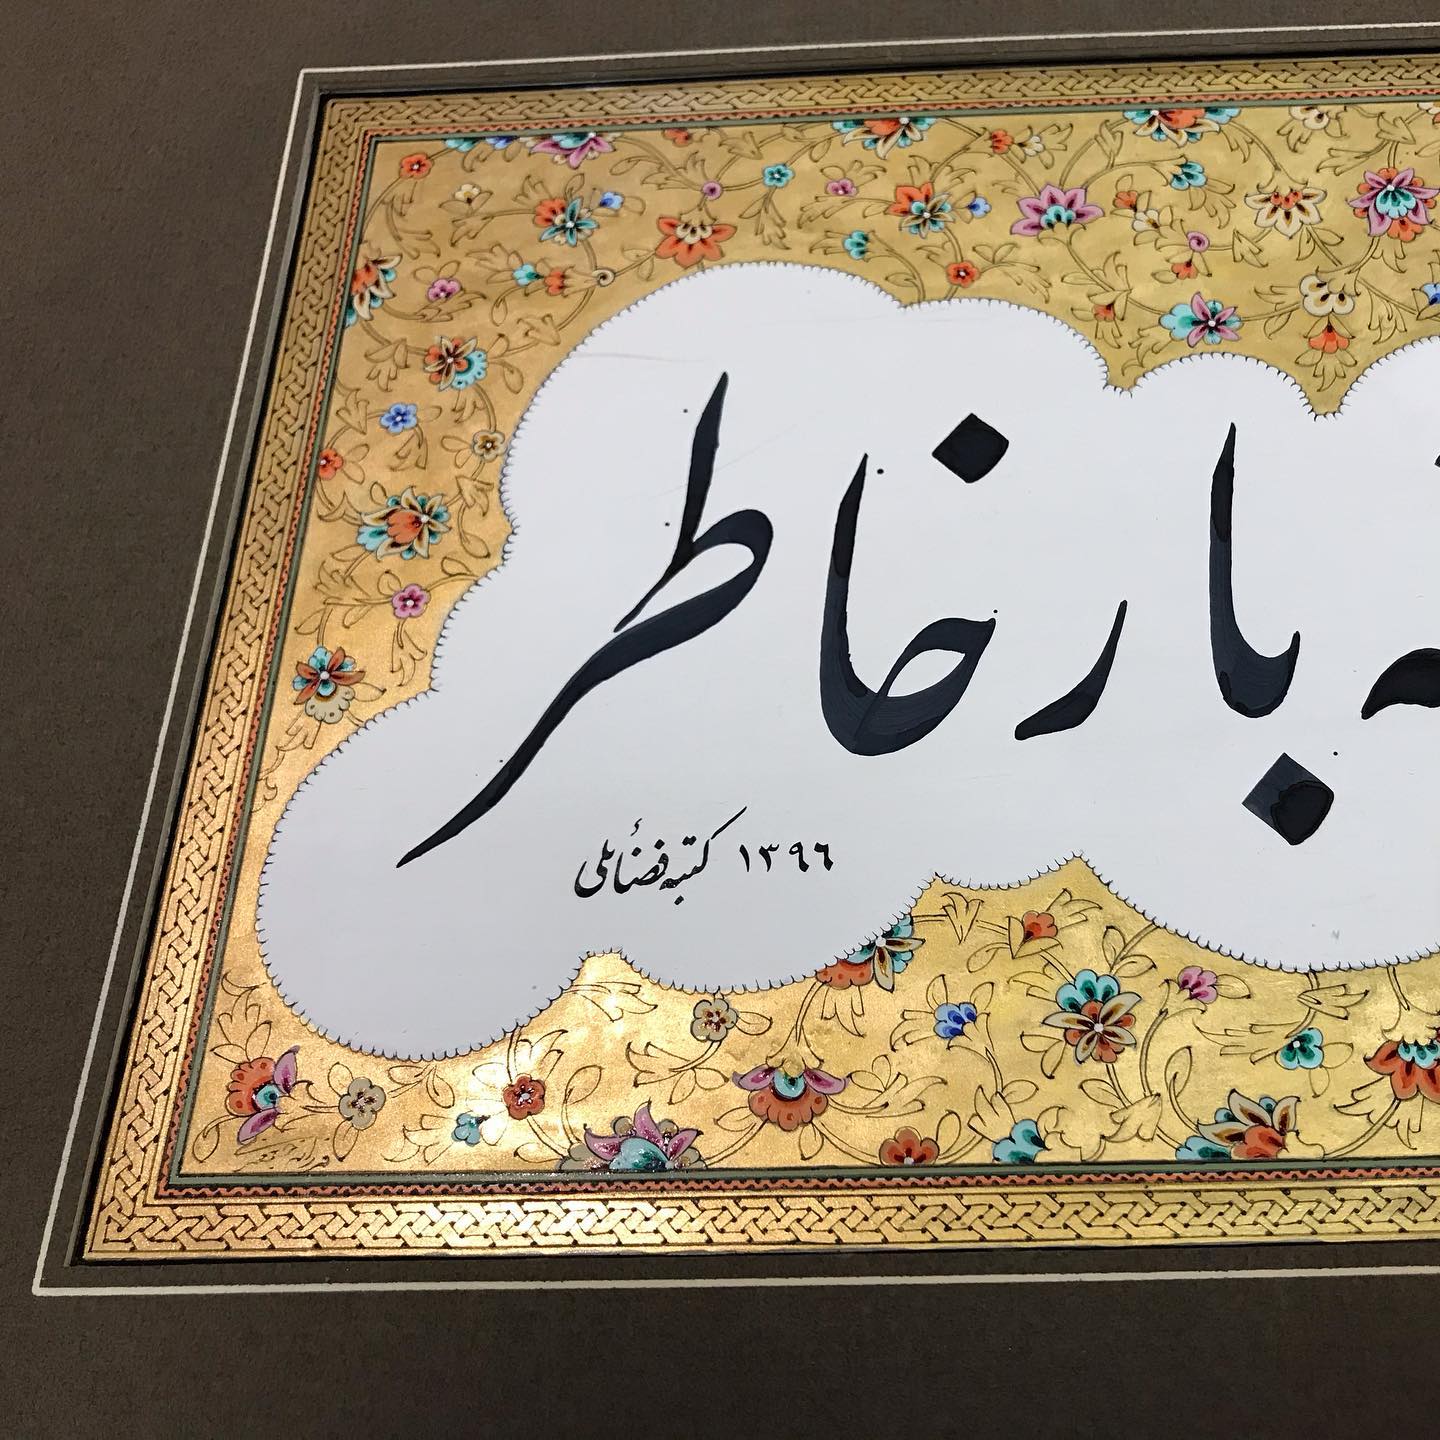 نه بار خاطر
کتبه فضائلی ۱۳۹۶